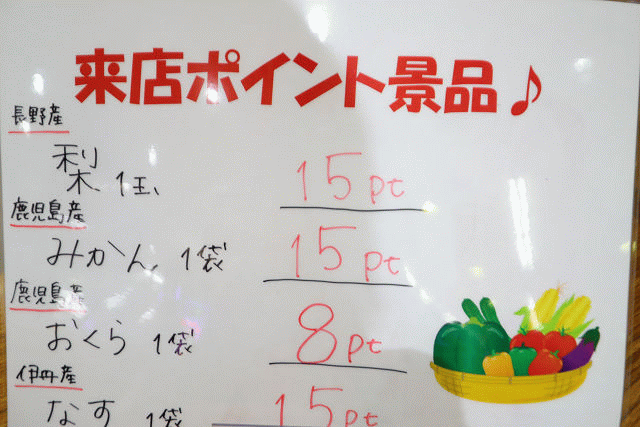 来店ポイント景品♪
長野産
梨 1玉 15pt
鹿児島産
みかん 1袋 15pt
鹿児島産
おくら 1袋 8pt
伊丹産
なす 1袋 15pt